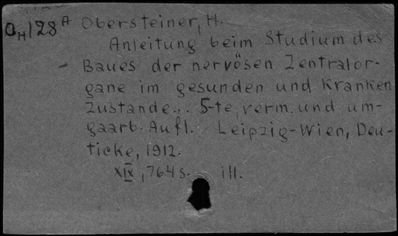 OH/28 A Obersteiner, H.
Anleitung beim Studium des
- Baues der nervösen Zentralor-
gane im gesunden und kranken
Zustande... 5-te, verm. und um-
gearb. Aufl. Leipzig-Wien, Deu-
ticke, 1912.
XIX, 764 s. ill.